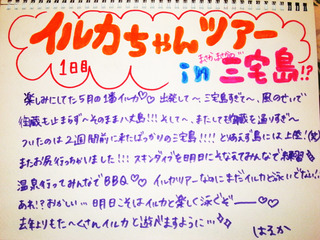 イルカちゃんツアー
1日目
まさか、まさかの
in 三宅島!?
楽しみにしてた5月の1番イルカ♡♡ 出発して〜三宅島すぎて〜、風のせいで
御蔵も止まらず〜そのままハ丈島!!! そして〜、またしても御蔵を通りすぎ〜
ついたのは2週間前に来たばっかりの三宅島!!!! とりあえず島には上陸!(笑)
またお尻行っちゃいました!!! スキンダイブを明日にそなえてみんなで練習
温泉行ってみんなでBBQ♡♡ イルカツアーなのにまだイルカと泳いでない!
あれ!?おかしい… 明日こそはイルカと楽しく泳ぐぞー♡♡
去年よりもたくさんイルカと遊べますように…
はるか